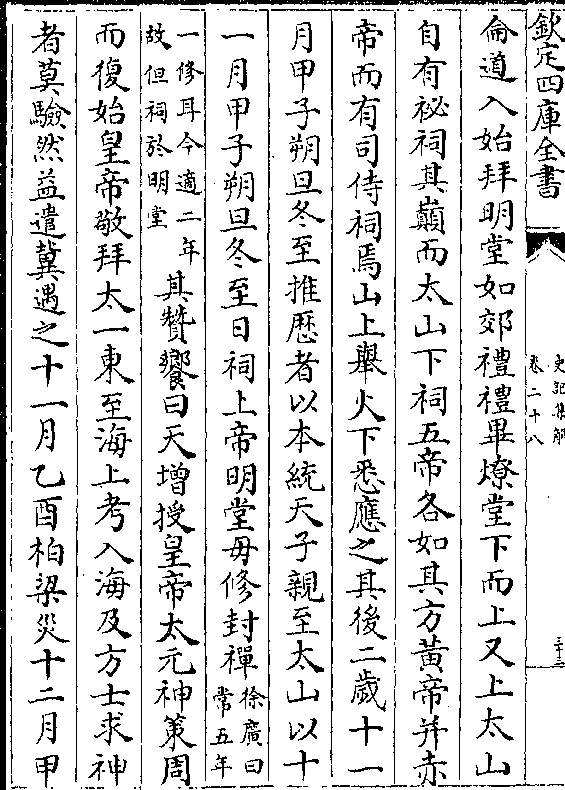 欽定四庫全書
史記集解
卷二十八
三十三
侖道入始拜明堂如郊禮禮畢燎堂下而上又上太山
自有祕祠其巔而太山下祠五帝各如其方黃帝并赤
帝而有司侍祠焉山上舉火下悉應之其後二歲十一
月甲子朔旦冬至推厯者以本統天子親至太山以十
一月甲子朔旦冬至日祠上帝明堂毋修封禪徐廣曰常五年
一修耳今適二年故但祠於明堂其贊饗曰天增授皇帝太元神䇿周
而復始皇帝敬拜太一東至海上考入海及方士求神
者莫驗然益遣冀遇之十一月乙酉柏梁災十二月甲